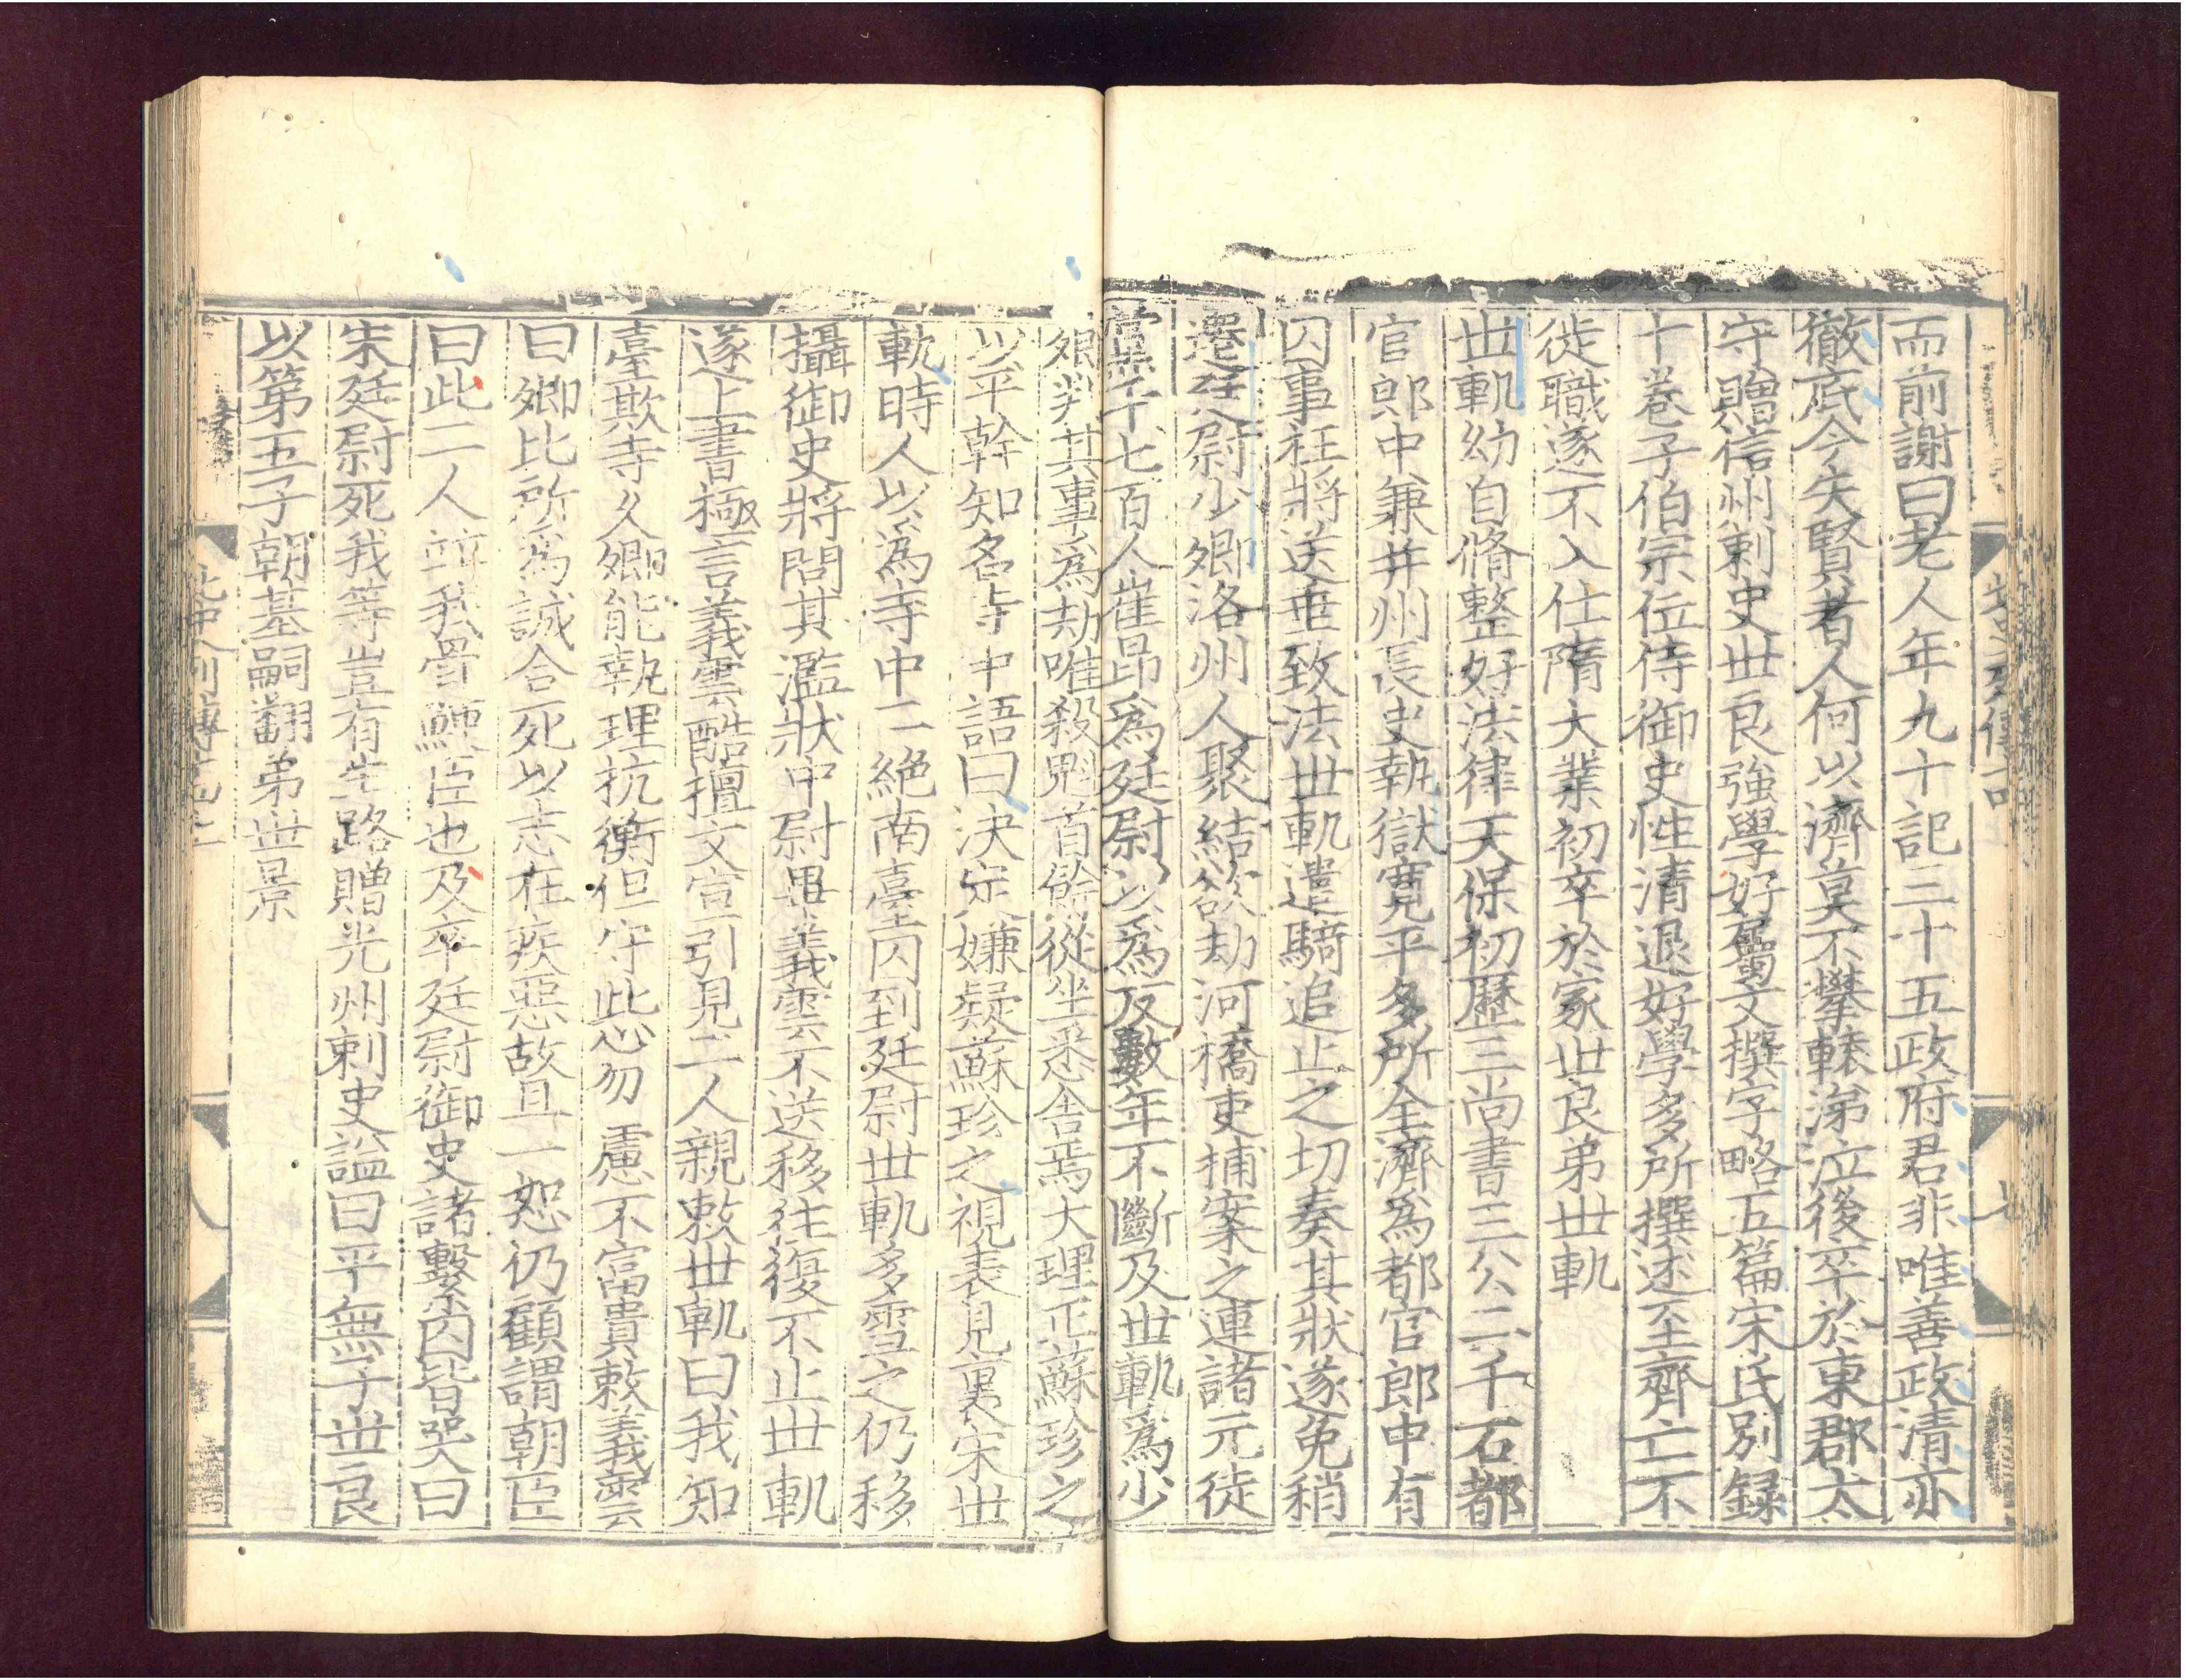 而前謝曰老人年九十記三十五政府君非唯善政清亦
徹底今失賢者人何以濟莫不攀轅涕泣後卒於東郡太
守贈信州剌史世良強學好屬文撰字略五篇宋氏別録
十卷子伯宗位侍御史性清退好學多所撰述至齊亡不
徙職遂不入仕隋大業初卒於家世良弟世軌
世軌幼自脩整好法律天保初歷三尚書三公二千石都
官郎中兼并州長史執獄寬平多所全濟爲都官郎中有
囚事枉將送垂致法世軌遣騎追止之切奏其狀遂免稍
遷廷尉少卿洛州人聚結欲劫河橋吏捕案之連諸元徒
黨千七百人崔昂爲廷尉以爲反數年不斷及世軌爲少
卿判其事爲劫唯殺魁首餘從坐悉舍焉大理正蘇珍之
以平幹知名寺中語曰決定嫌疑蘇珍之視表見裏宋世
軌時人以爲寺中二絶南臺囚到廷尉世軌多雪之仍移
攝御史將問其濫狀中尉畢義雲不送移往復不止世軌
遂上書極言義雲酷擅文宣引見二人親敕世軌曰我知
臺欺寺久卿能執理抗衡但守此心勿慮不富貴敕義雲
曰卿比所爲誠合死以志在疾惡故且一恕仍顧謂朝臣
曰此二人並我骨鯁臣也及卒廷尉御史諸繫囚皆哭曰
宋廷尉死我等豈有生路贈光州剌史謚曰平無子世良
以第五子朝基嗣翻弟世景
北史列傳十四
七